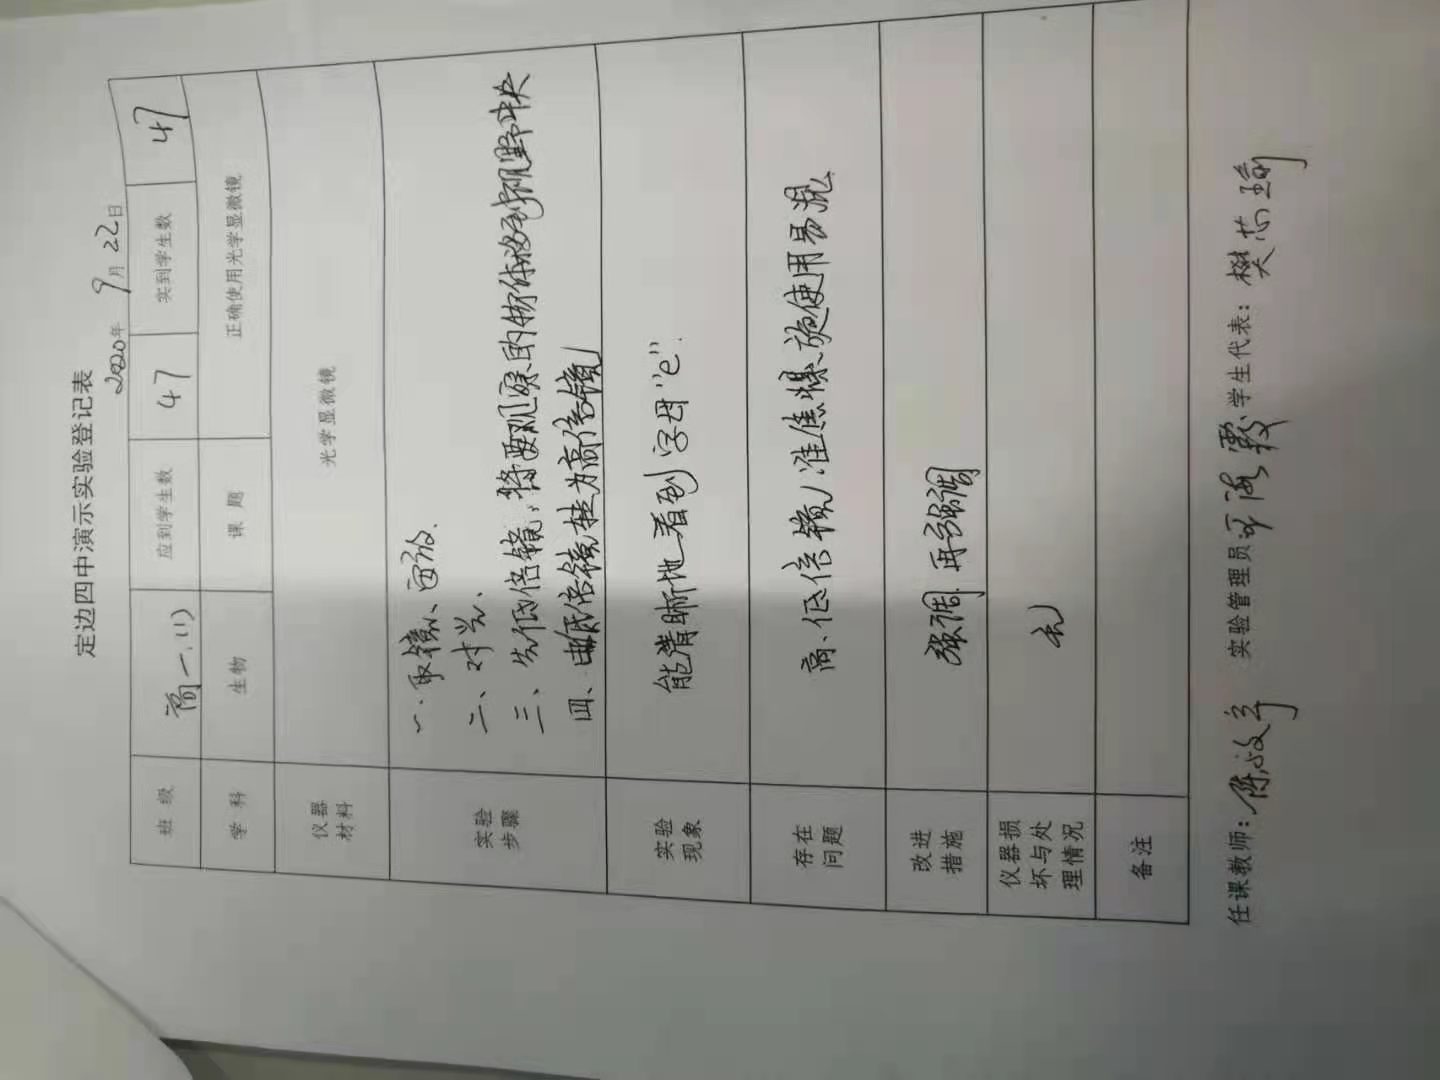 定边四中演示实验登记表
2020年 9月 22日
班 级 高一.(1) 应到学生数 47 实到学生数 47
学 科 生物 课 题 正确使用光学显微镜
仪器材料 光学显微镜
实验步骤
一、取镜、安放.
二、对光.
三、先低倍镜,将要观察的物体移到视野中央
四、由低倍镜转为高倍镜
实验现象 能清晰地看到字母"e".
存在问题 高、低倍镜,准焦螺旋使用易混
改进措施 强调 再强调
仪器损坏与处理情况 无
备注
任课教师: 实验管理员 学生代表: 樊芯瑜